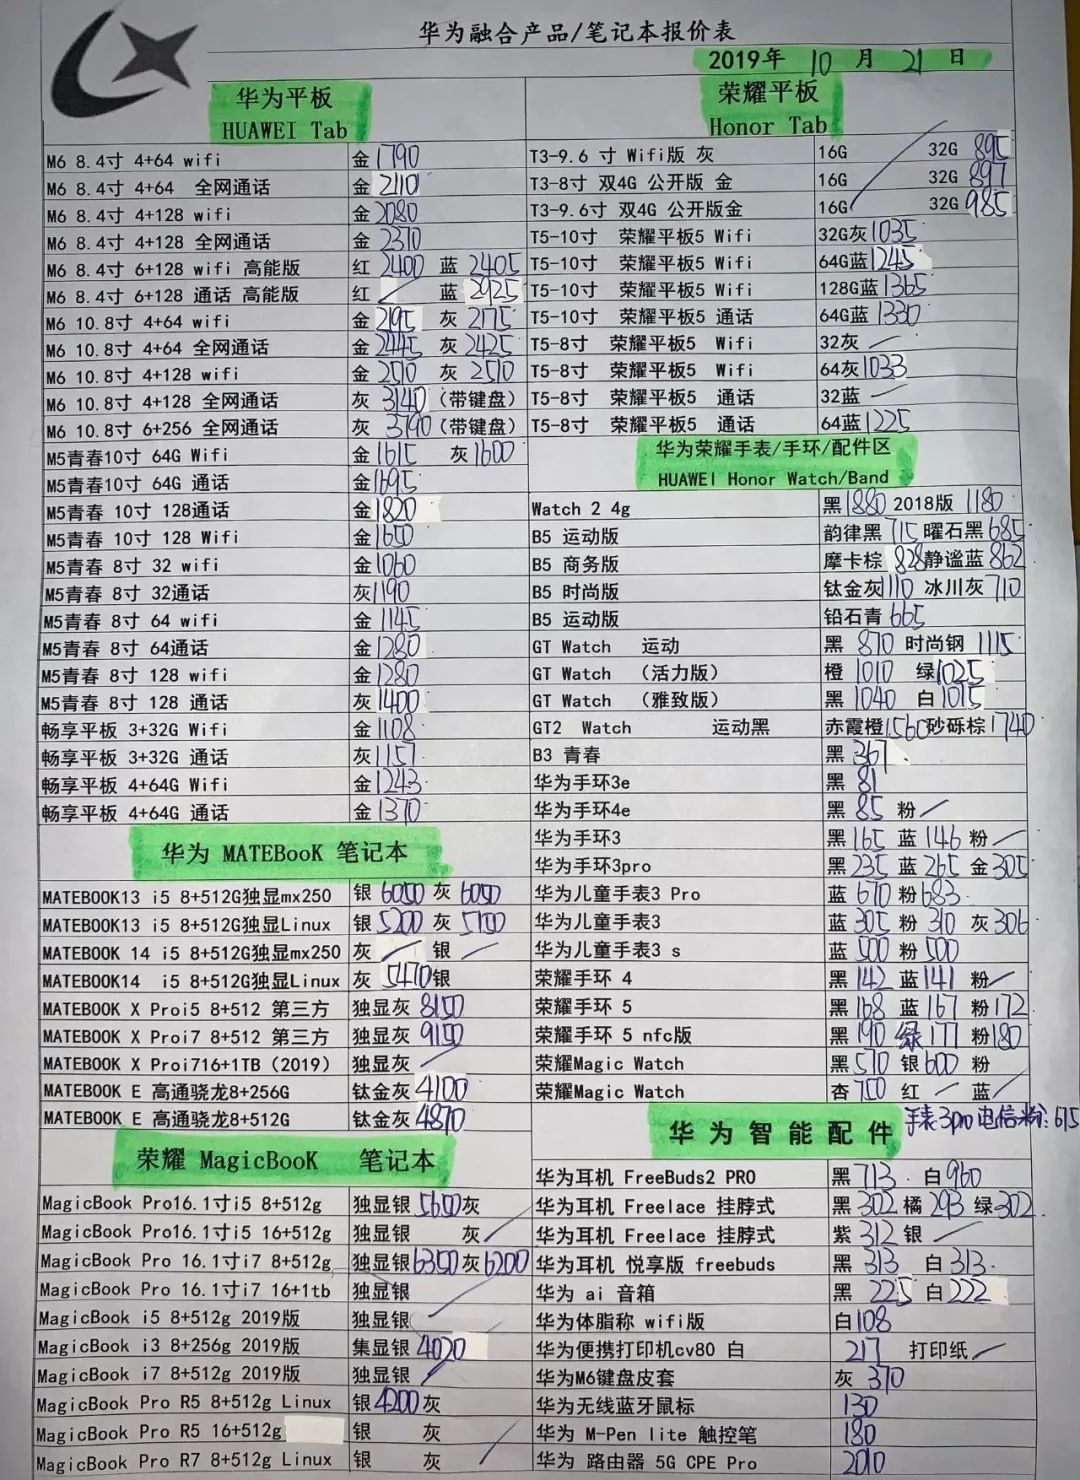 华为融合产品/笔记本报价表
2019年 10 月 21 日
华为平板
HUAWEI Tab
M6 8.4寸 4+64 wifi 金 1790
M6 8.4寸 4+64 全网通话 金 2110
M6 8.4寸 4+128 wifi 金 2080
M6 8.4寸 4+128 全网通话 金 2370
M6 8.4寸 6+128 wifi 高能版 红 2400 蓝 2405
M6 8.4寸 6+128 通话 高能版 红 / 蓝 2925
M6 10.8寸 4+64 wifi 金 2195 灰 2175
M6 10.8寸 4+64 全网通话 金 2445 灰 2425
M6 10.8寸 4+128 wifi 金 2510 灰 2510
M6 10.8寸 4+128 全网通话 灰 3140 (带键盘)
M6 10.8寸 6+256 全网通话 灰 3190 (带键盘)
M5青春10寸 64G Wifi 金 1615 灰 1600
M5青春10寸 64G 通话 金 1695
M5青春 10寸 128通话 金 1820
M5青春 10寸 128 Wifi 金 1650
M5青春 8寸 32 wifi 金 1060
M5青春 8寸 32通话 灰 1190
M5青春 8寸 64 wifi 金 1145
M5青春 8寸 64通话 金 1280
M5青春 8寸 128 wifi 金 1280
M5青春 8寸 128 通话 灰 1400
畅享平板 3+32G Wifi 金 1108
畅享平板 3+32G 通话 灰 1157
畅享平板 4+64G Wifi 金 1243
畅享平板 4+64G 通话 金 1370
华为 MATEBooK 笔记本
MATEBOOK13 i5 8+512G独显mx250 银 6050 灰 6050
MATEBOOK13 i5 8+512G独显Linux 银 5200 灰 5100
MATEBOOK 14 i5 8+512G独显mx250 灰 / 银 /
MATEBOOK14 i5 8+512G独显Linux 灰 5470 银
MATEBOOK X Proi5 8+512 第三方 独显灰 8150
MATEBOOK X Proi7 8+512 第三方 独显灰 9150
MATEBOOK X Proi716+1TB (2019) 独显灰 /
MATEBOOK E 高通骁龙8+256G 钛金灰 4100
MATEBOOK E 高通骁龙8+512G 钛金灰 4870
荣耀 MagicBooK 笔记本
MagicBook Pro16.1寸i5 8+512g 独显银 5600 灰
MagicBook Pro16.1寸i5 16+512g 独显银 灰 /
MagicBook Pro 16.1寸i7 8+512g 独显银 6350 灰 6200
MagicBook Pro 16.1寸i7 16+1tb 独显银
MagicBook i5 8+512g 2019版 独显银 /
MagicBook i3 8+256g 2019版 集显银 4020
MagicBook i7 8+512g 2019版 独显银 /
MagicBook Pro R5 8+512g Linux 银 4200 灰
MagicBook Pro R5 16+512g 银 灰
MagicBook Pro R7 8+512g Linux 银 灰 /
荣耀平板
Honor Tab
T3-9.6 寸 Wifi版 灰 16G / 32G 895
T3-8寸 双4G 公开版 金 16G 32G 897
T3-9.6寸 双4G 公开版金 16G 32G 985
T5-10寸 荣耀平板5 Wifi 32G灰 1035
T5-10寸 荣耀平板5 Wifi 64G蓝 1245
T5-10寸 荣耀平板5 Wifi 128G蓝 1365
T5-10寸 荣耀平板5 通话 64G蓝 1330
T5-8寸 荣耀平板5 Wifi 32灰 /
T5-8寸 荣耀平板5 Wifi 64灰 1033
T5-8寸 荣耀平板5 通话 32蓝 /
T5-8寸 荣耀平板5 通话 64蓝 1225
华为荣耀手表/手环/配件区
HUAWEI Honor Watch/Band
Watch 2 4g 黑 1880 2018版 1180
B5 运动版 韵律黑 715 曜石黑 685
B5 商务版 摩卡棕 828 静谧蓝 862
B5 时尚版 钛金灰 1110 冰川灰 710
B5 运动版 铅石青 665
GT Watch 运动 黑 870 时尚钢 1115
GT Watch (活力版) 橙 1010 绿 1025
GT Watch (雅致版) 黑 1040 白 1015
GT2 Watch 运动黑 赤霞橙 1560 砂砾棕 1740
B3 青春 黑 367
华为手环3e 黑 81
华为手环4e 黑 85 粉 /
华为手环3 黑 165 蓝 146 粉 /
华为手环3pro 黑 235 蓝 265 金 305
华为儿童手表3 Pro 蓝 670 粉 683
华为儿童手表3 蓝 305 粉 310 灰 306
华为儿童手表3 s 蓝 500 粉 500
荣耀手环 4 黑 142 蓝 141 粉 /
荣耀手环 5 黑 168 蓝 167 粉 172
荣耀手环 5 nfc版 黑 190 绿 177 粉 180
荣耀Magic Watch 黑 570 银 600 粉
荣耀Magic Watch 杏 750 红 / 蓝 /
华为智能配件 手表3pro电信粉: 615
华为耳机 FreeBuds2 PRO 黑 713 白 960
华为耳机 Freelace 挂脖式 黑 302 橘 293 绿 302
华为耳机 Freelace 挂脖式 紫 312 银 /
华为耳机 悦享版 freebuds 黑 313 白 313
华为 ai 音箱 黑 225 白 222
华为体脂称 wifi版 白 108
华为便携打印机cv80 白 217 打印纸 /
华为M6键盘皮套 灰 370
华为无线蓝牙鼠标 130
华为 M-Pen lite 触控笔 180
华为 路由器 5G CPE Pro 2010